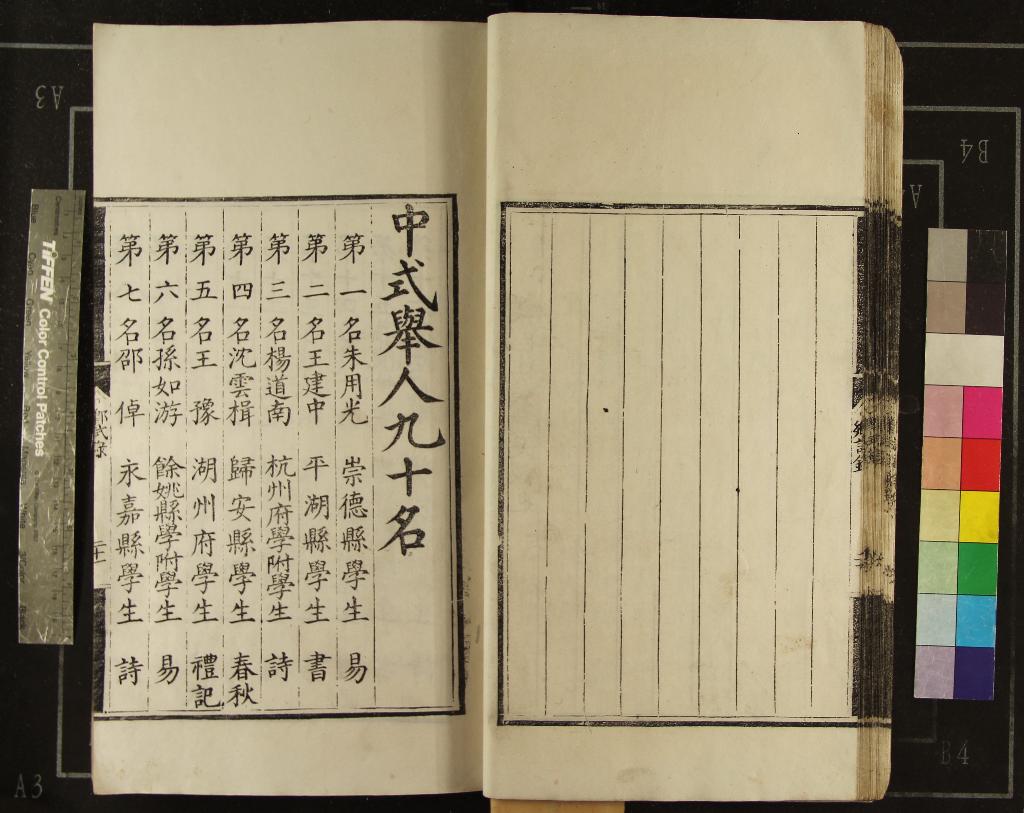 中式舉人九十名
第一名朱用光 崇德縣學生 易
第二名王建中 平湖縣學生 書
第三名楊道南 杭州府學附學生 詩
第四名沈雲楫 歸安縣學生 春秋
第五名王豫 湖州府學生 禮記
第六名孫如游 餘姚縣學附學生 易
第七名邵倬 永嘉縣學生 詩
TIFFEN Color Control Patches
A3
A3
B4
B4